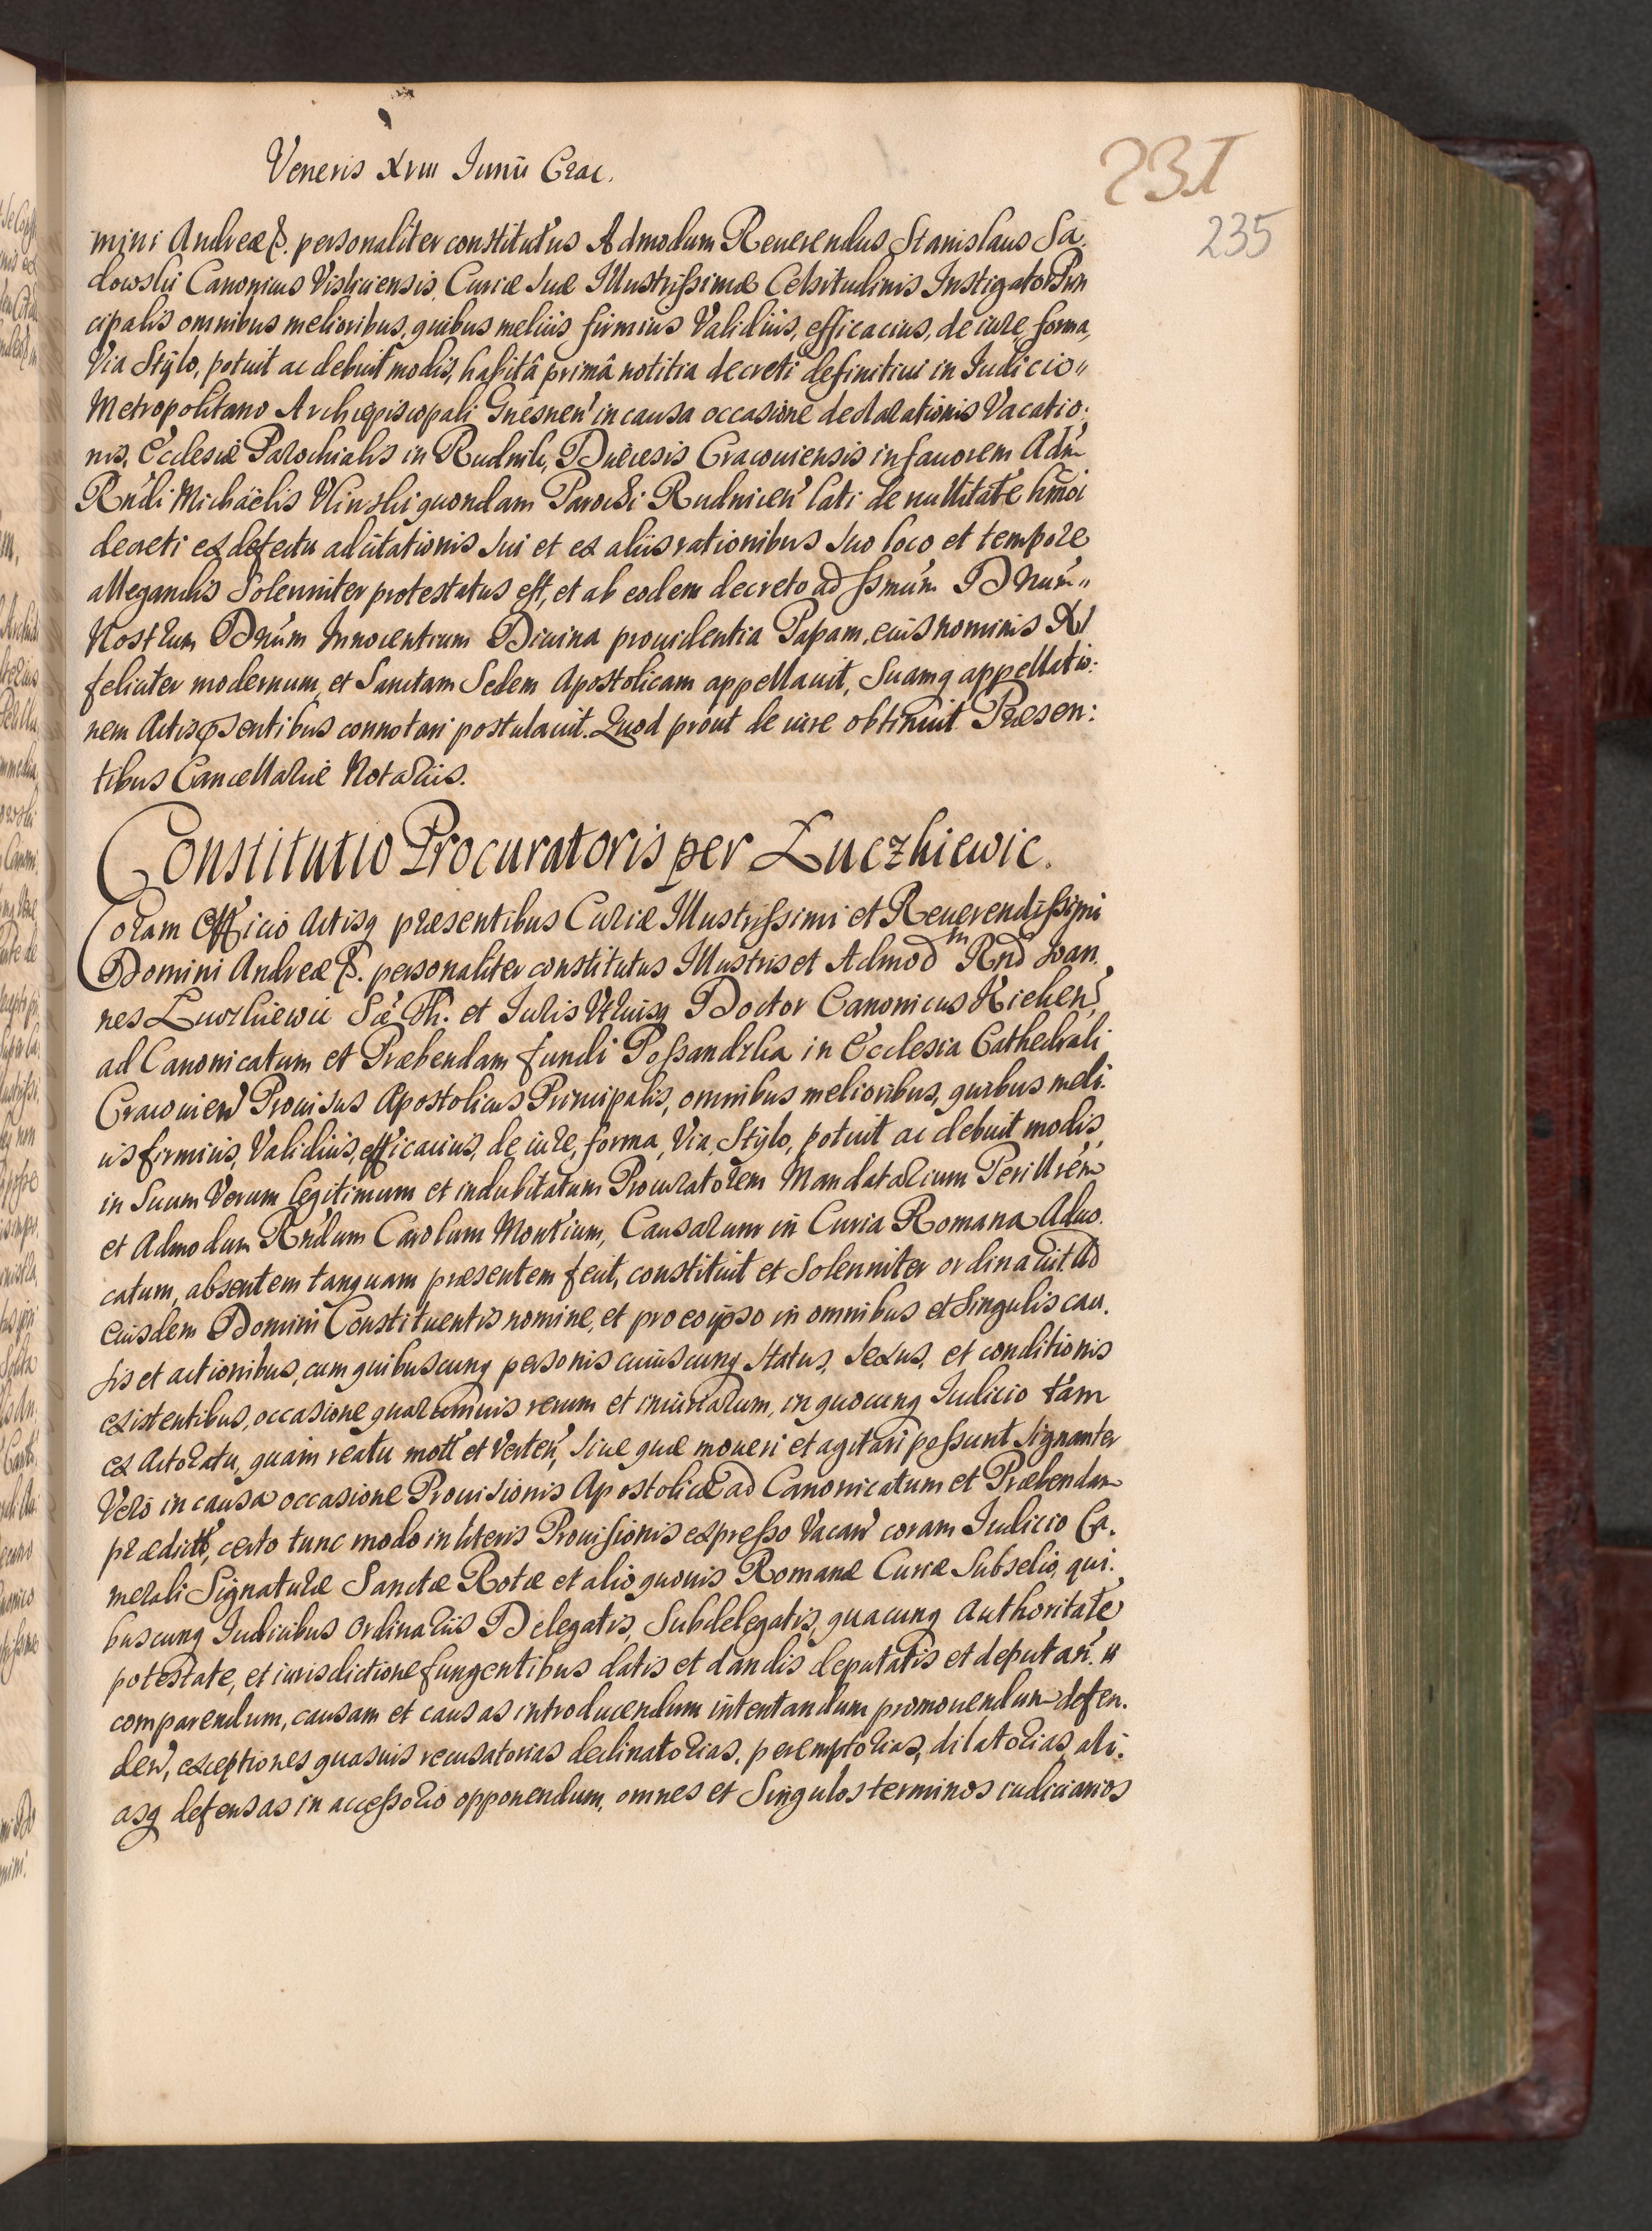 Veneris XVIII Junii Crac.
231
235
mini Andreæ &. personaliter constitutus Admodum Reuerendus Stanislaus Sa.
dowski Canonicus Visliciensis, Curiæ Suæ Illustrissimæ Celsitudinis Instigator Prin
cipalis omnibus melioribus, quibus meliùs firmius Validiùs, efficacius, de iure, forma,
Via Stÿlo, potuit ac debuit modis, habitâ primâ notitia decreti definitiui in Iudicio "
Metropolitano Archiepiscopali Gnesnen in causa occasione declarationis Vacatio.
nis, Ecclesiæ Parochialis in Rudnik, Diæcesis Cracouiensis in fauorem Adm
Rndi Michäelis Vlinski quondam Parochi Rudnicen lati de nullitate hmoi
decreti ex defectu adcitationis sui et ex aliis rationibus suo loco et tempore
allegandis Solenniter protestatus est, et ab eodem decreto ad ssmum Dnum "
Nostrum Dnum Innocentium Diuina prouidentia Papam, eius nominis XI
feliciter modernum, et Sanctam Sedem Apostolicam appellauit, Suamq appellatio:
nem Actis psentibus connotari postulauit. Quod prout de iure obtinuit Præsen:
tibus Cancellariæ Notariis.
Constitutio Procuratoris per Łuczkiewic.
Coram Officio Actisq præsentibus Curiæ Illustrissimi et Reuerendissimi
Domini Andreæ &. personaliter constitutus Illustris et Admodm Rnd Ioan.
nes Łuczkiewic Sæ Th. et Iuris Vtriusq Doctor Canonicus Kielcen,
ad Canonicatum et Præbendam fundi Possandzka in Ecclesia Cathedrali
Cracouien Prouisus Apostolicus Principalis, omnibus melioribus, quibus meli.
us firmius, Validius, efficacius, de iure, forma, Via, Stÿlo, potuit ac debuit modis,
in Suum Verum legitimum et indubitatum Procuratorem Mandatarium Perillrem
et Admodum Rndum Carolum Montium, Causarum in Curia Romana Aduo.
catum, absentem tanquam præsentem fecit, constituit et Solenniter ordinauit. Ad
eiusdem Domini Constituentis nomine, et pro eo ipso in omnibus et Singulis cau.
sis et actionibus, cum quibuscunq personis cuiuscunq status, sexus, et conditionis
existentibus, occasione quarumuis rerum et iniuriarum, in quocunq Iudicio tam
ex Actoratu, quàm reatu mott et Verten, siue quæ moueri et agitari possunt signanter
Verò in causa occasione Prouisionis Apostolicæ ad Canonicatum et Præbendam
prædictt, certo tunc modo in literis Prouisionis expresso Vacan coram Iudicio Ca.
merali Signaturæ Sanctæ Rotæ et alio quouis Romanæ Curiæ Subselio, qui.
buscunq Iudicibus Ordinariis Delegatis, Subdelegatis, quacunq Authoritate
potestate, et iurisdictione fungentibus datis et dandis deputatis et deputan. "
comparendum, causam et causas introducendum intentandum promouendum defen.
den, exceptiones quasuis recusatorias declinatorias, peremptorias, dilatorias, ali.
asq defensas in accessorio opponendum, omnes et Singulos terminos iudiciarios